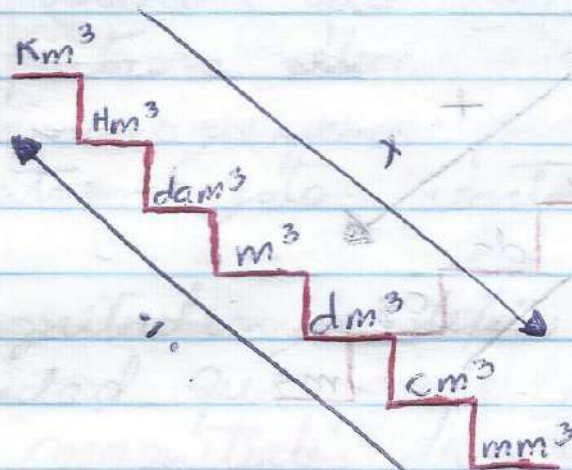 Km³
Hm³
dam³
x
m³
dm³
cm³
mm³